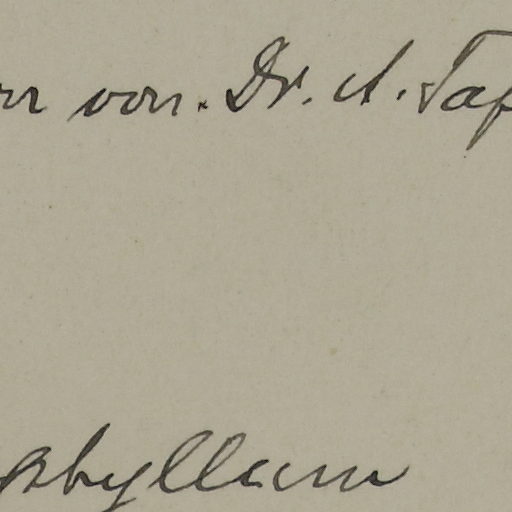 von. Dr. A. Taf
phyllum